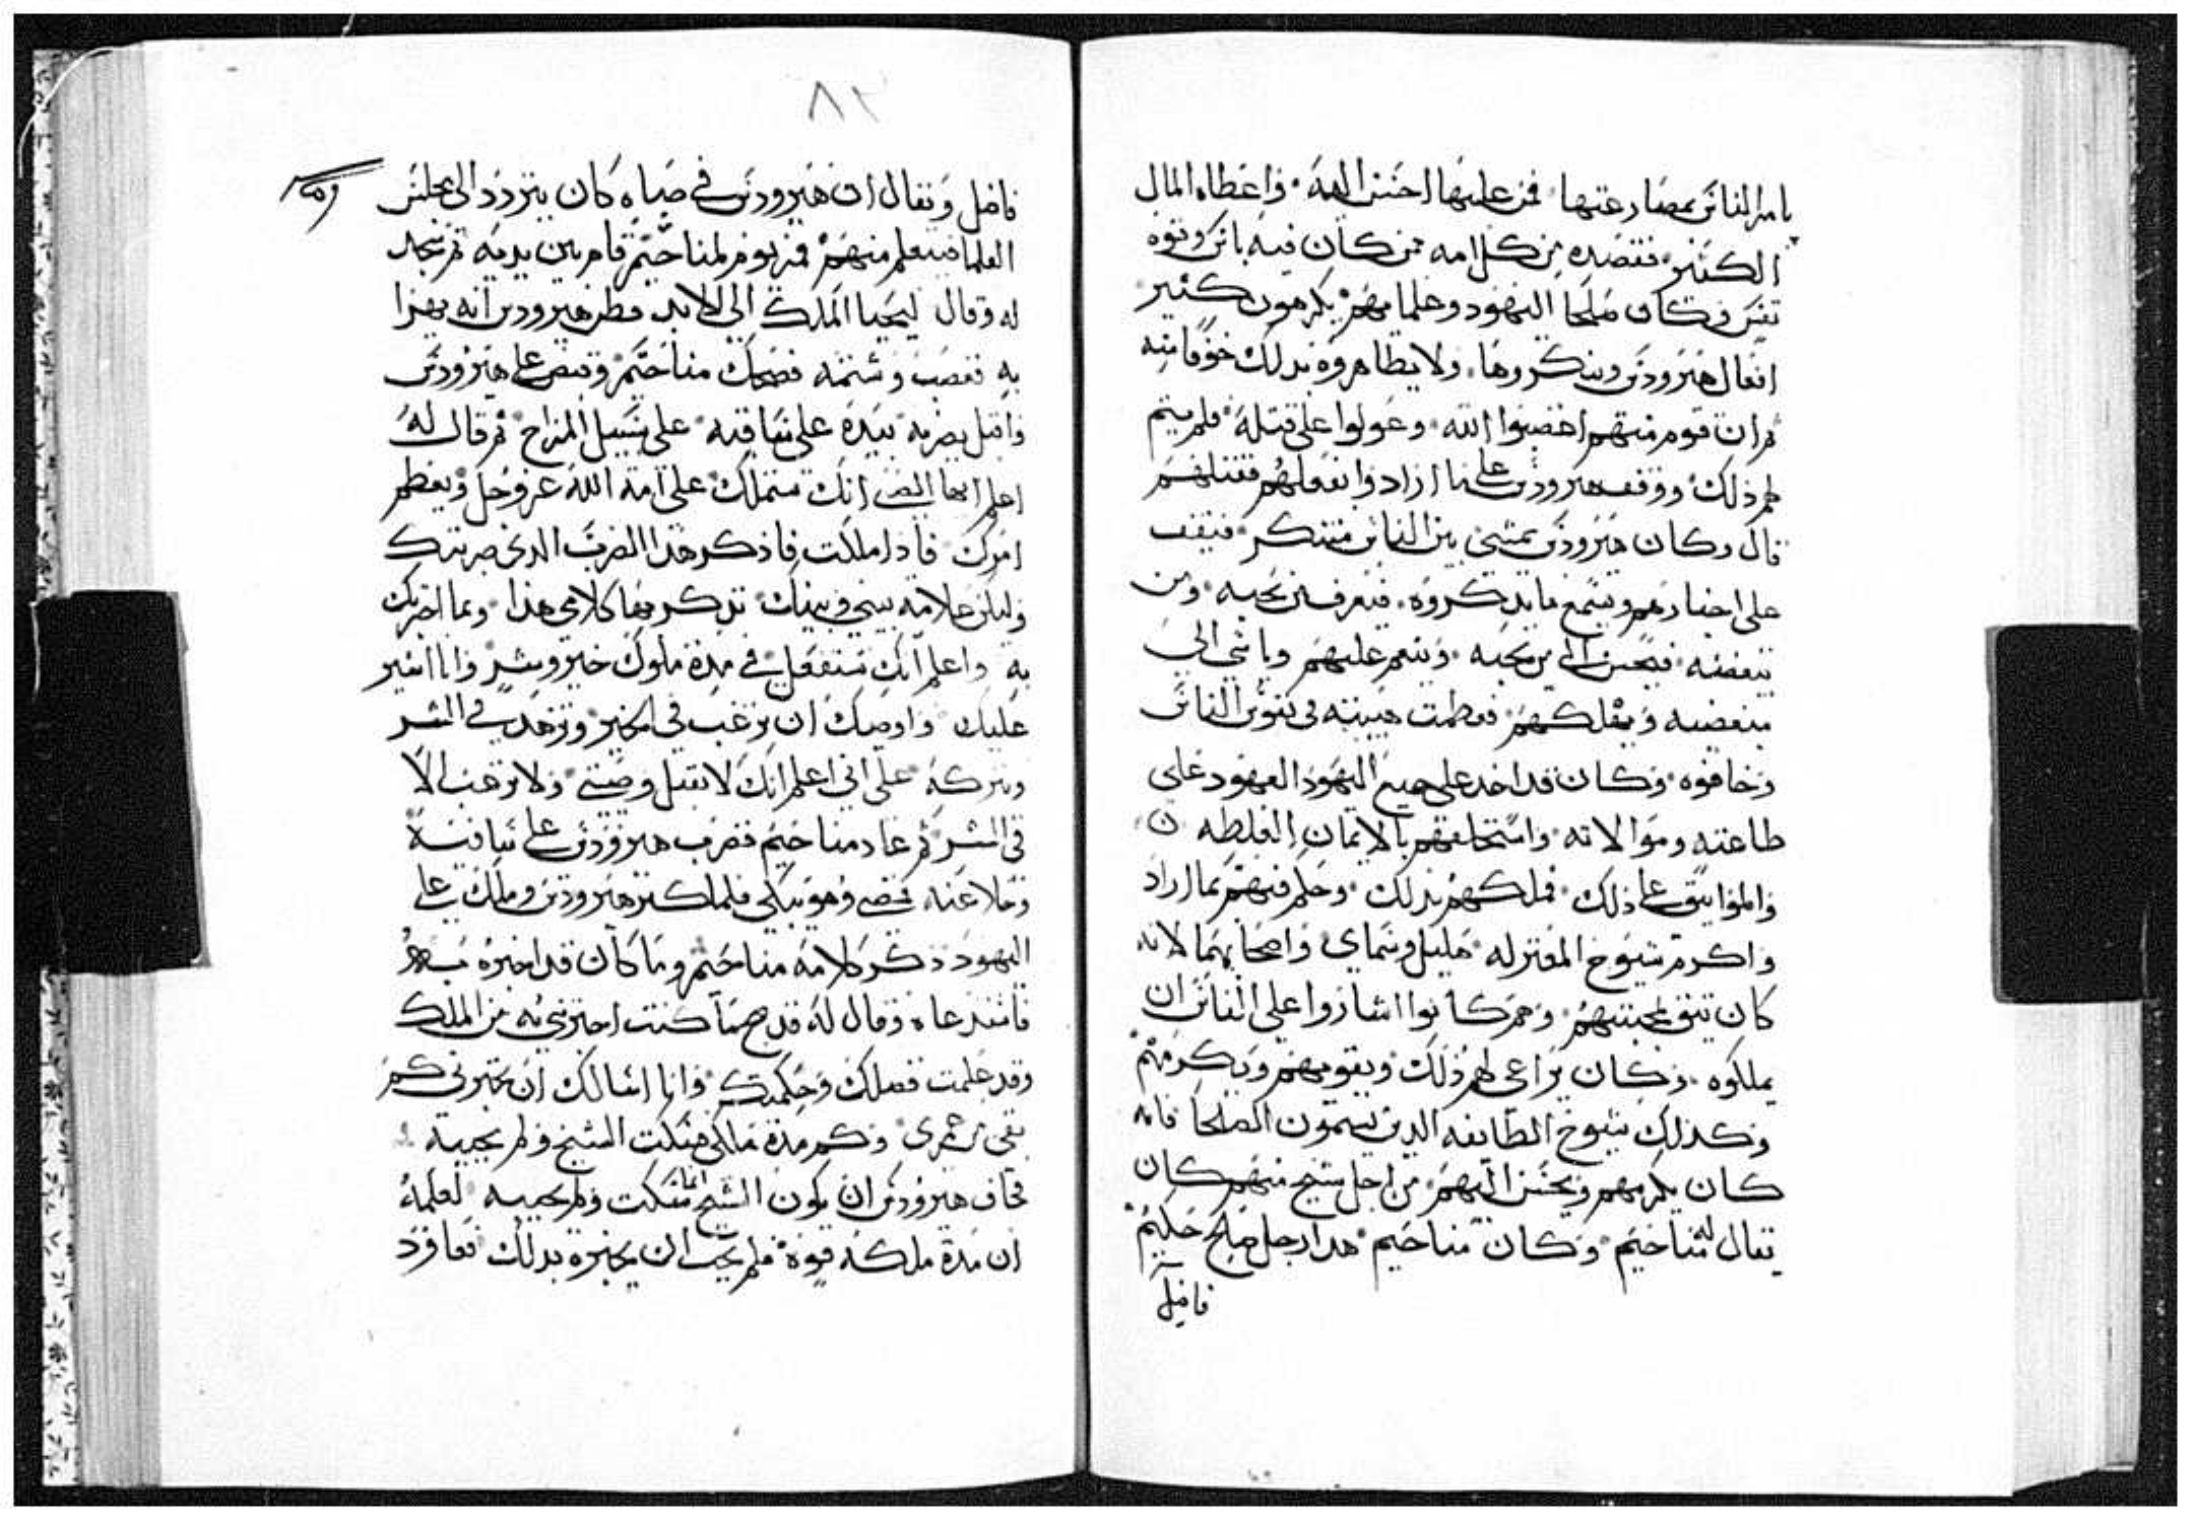 يامر الناس بمصارعتها فمن غلبها احسن اليه واعطاه المال
الكثير فقصده من كل امه من كان فيه باس وقوه
نفس وكان صلحا اليهود وعلماهم يكرهون كثير
افعال هيرودس وينكروها ولا يظاهروه بذلك خوفا منه
ثم ان قوم منهم اغضبوا الله وعولوا على قتله فلم يتم
لهم ذلك ووقف هيرودس على ما ارادوا بفعلهم فقتلهم
قال وكان هيرودس يمشي بين الناس متنكر فيقف
على اخبارهم ويسمع ما يذكروه فيعرف من يحبه ومن
يبغضه فيحسن الى من يحبه وينعم عليهم وياتي الى
مبغضيه ويهلكهم فعظمت هيبته في نفوس الناس
وخافوه وكان قد اخد على جميع اليهود العهود على
طاعته وموالاته واستحلفهم بالايمان الغلظه
والمواثيق على ذلك فملكهم بذلك وحكم فيهم بما اراد
واكرم شيوخ المعتزله هليل وشماي واصحابهما لانه
كان يثق بمحبتهم وهم كانوا اشاروا على الناس ان
يملكوه وكان يراعى لهم ذلك ويقومهم ويكرمهم
وكذلك شيوخ الطايفه الدين يسمون الصلحا فانه
كان يكرمهم ويحسن اليهم من اجل شيخ منهم كان
يقال له مناحيم وكان مناحيم هدا رجل صالح حكيم
فاضل
٨٢
فاضل ويقال ان هيرودس في صباه كان يتردد الى مجلس
العلما فيتعلم منهم فمر يوم لمناحيم قام بين يديه ثم سجد
له وقال ليحيا الملك الى الابد فظن هيرودس انه يهزا
به فغضب وشتمه فضحك مناحيم وقبض على هيرودس
واقبل يضربه بيده على قيافته على سبيل المزاح ثم قال له
اعلم ايها الصبي انك ستملك على امة الله عز وجل ويعظم
امرك فاذا ملكت فاذكر هدا الضرب الدي ضربتك
وليكن علامه بيني وبينك تذكر بها كلامي هذا وبما اخبرتك
به واعلم انك ستفعل في مدة ملوك خير وشر وانا اشير
عليك واوصيك ان ترغب في الخير وتزهد في الشر
وتتركه على اني اعلم انك لا تقبل وصيتي ولا ترغب الا
في الشر ثم عاد مناحيم فضرب هيرودس على قيافته
وخلا عنه فمضى وهو يبكي فلما كبر هيرودس وملك على
اليهود ذكر كلامه مناحيم وما كان قد اخبره به
فاستدعاه وقال له قد صح ما كنت اخبرتني به من الملك
وقد علمت فضلك وحكمتك وانا اسالك ان تخبرني كم
بقى من عمري وكم مدة ملكي فسكت الشيخ ولم يجيبه
فخاف هيرودس ان يكون الشيخ انما سكت ولم يجيبه لعلمه
ان مدة ملكه قوه فلم يحب ان يخبره بدلك فعاود